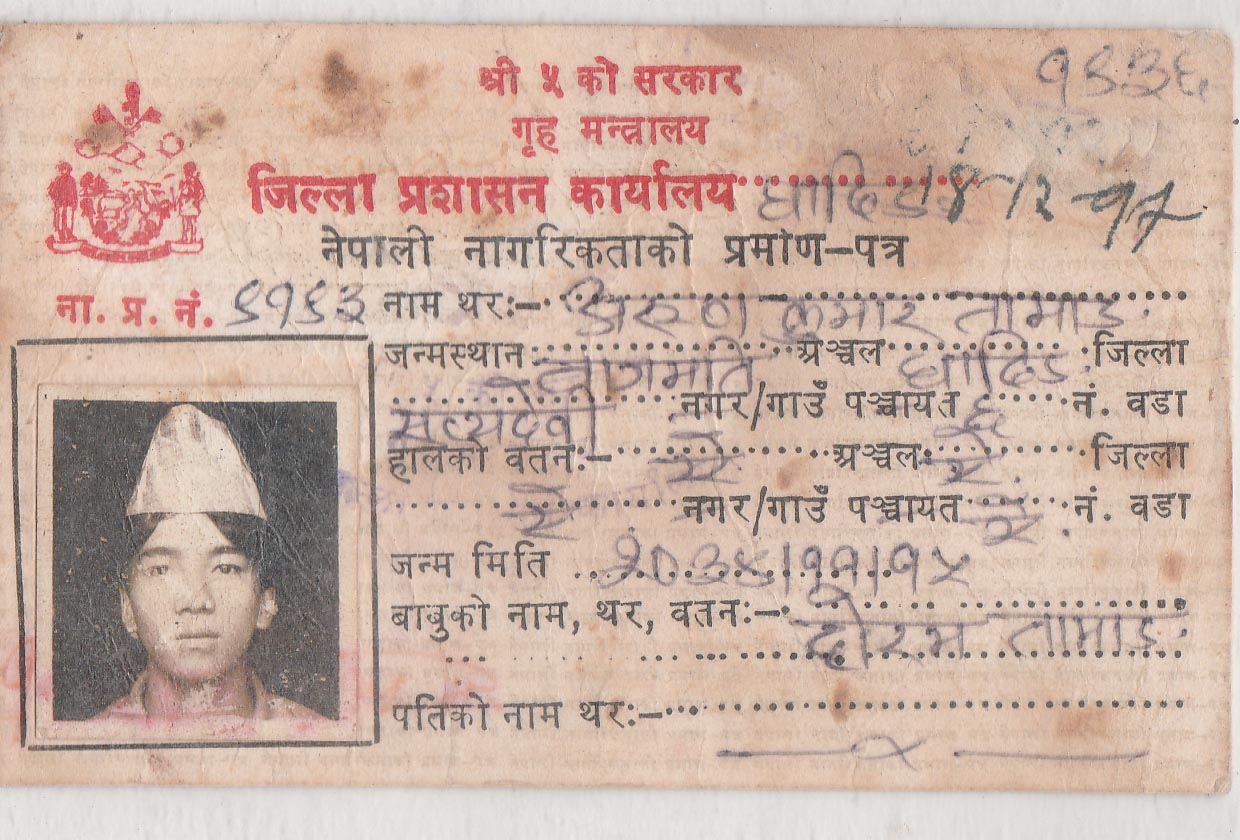 १९३६
श्री ५ को सरकार
गृह मन्त्रालय
जिल्ला प्रशासन कार्यालय धादिङ
नेपाली नागरिकताको प्रमाण-पत्र
ना. प्र. नं. ९१९३ नाम थर:- अरुण कुमार तामाङ
जन्मस्थान: बागमति अञ्चल धादिङ जिल्ला
सत्यदेवी नगर/गाउँ पञ्चायत ६ नं. वडा
हालको वतन:- ऐ ऐ अञ्चल ऐ जिल्ला
ऐ नगर/गाउँ पञ्चायत ऐ नं. वडा
जन्म मिति २०३४।११।१५
बाबुको नाम, थर, वतन:- तामाङ
पतिको नाम थर:-